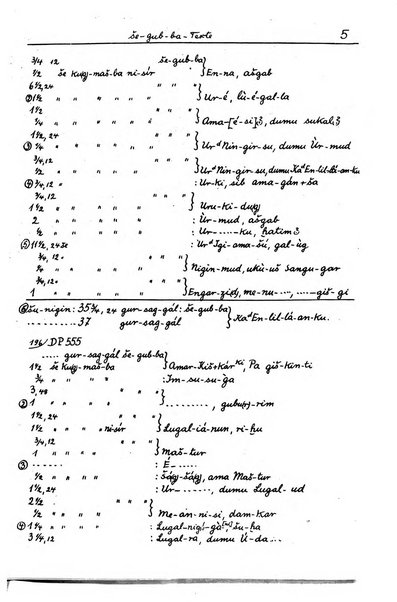 Še-gub-ba-Texte 5
3/4, 12 še-gub-ba
1/2 še kur6-maš-ba ni-sír } En-na, ašgab
6 1/2, 24 " " " "
② 1 1/2 " " " " } Ur-é, lù-é-gal-la
1 1/2 " " " "
1/4 " " " " } Ama- dumu sukal
1 1/2, 24 " " "
③ 3/4 " " " " } Ur d Nin-gir-su, dumu Ùr-mud
3/4, 12 " " "
1/2 " " " " } Ur d Nin-gir-su, dumu Ka d En-lil-lá-an-ku
④ 3/4, 12 " " " " : Ur-ki, sib ama-gán+ša
3/4, 12 " " "
1 1/2 " " " " } Uru-ki-du
2 " " " " : Ùr-mud, ašgab
1/2 " " " " : Ur------ku,
⑤ 11 1/2, 24 " " " : Ur d Igi-ama-šú, gal-ùg
3/4, 12 " " "
3/4 " " " " } Nigin-mud, ukù-uš sangu-gar
3/4, 12 " " "
1 " " " " } Engar-zi, me-nu----, -----giš-gi
⑥ šu-nigin: 35 3/4, 24 gur-sag-gál: še-gub-ba
-------- 37 gur-sag-gál } Ka d En-lil-lá-an-ku.
196/ DP 555
..... gur-sag-gál še-gub-ba
1 1/2 še kur6-maš-ba } Amar-Kiš+kár ki, Pa giš-kin-ti
3/4 " " " : Im-su-su-ga
3, 48 " "
② 1 " " " " } --------, -rim
1 1/2, 24 " "
1 1/2 " " " ni-sír } Lugal-iá-nun, ri-ḫu
3/4, 12 " "
1 " " " } Maš-tur
③ ------ : É-----
1 1/2 " " " " : Šà-šà, ama Maš-tur
1 1/2, 24 " " " : Ur-----, dumu Lugal-ud
2 1/2 " " "
1/2 " " " " } Me-an-ni-si, dam-kar
④ 1 1/4 " " " " : Lugal- šu-ḫa
3 1/4, 12 " " " : Lugal-ra, dumu Ú-da...